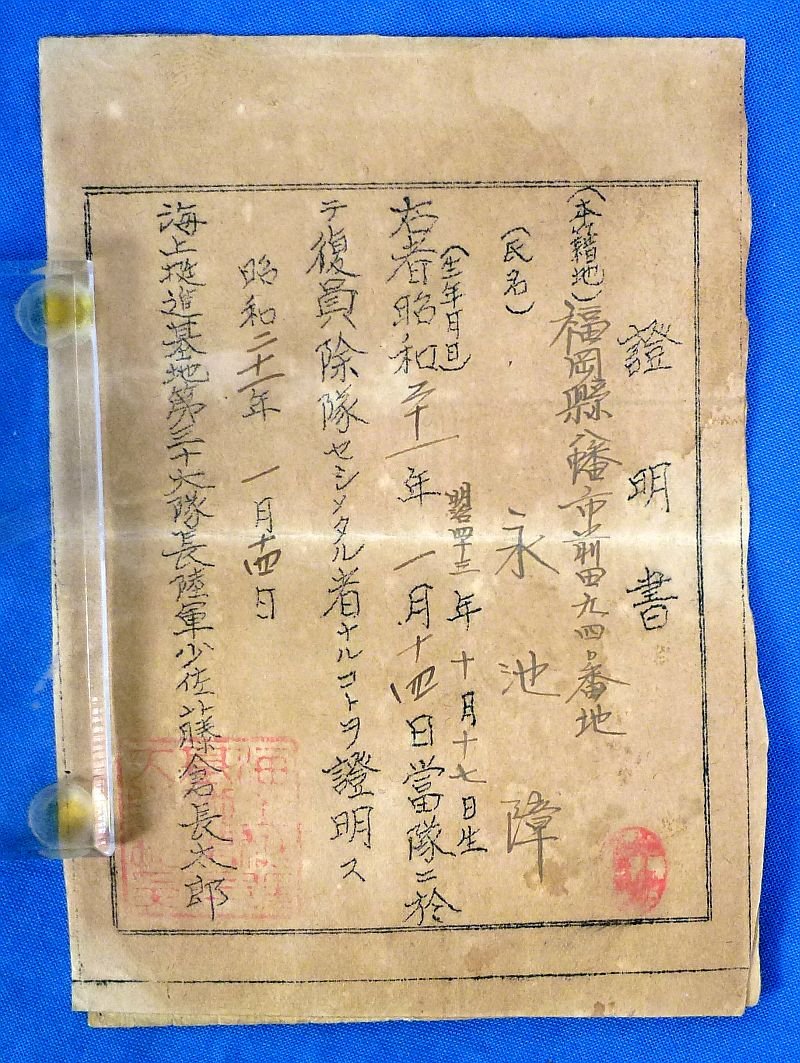 證明書
(本籍地)福岡縣八幡市前田九四〇番地
(氏名)永池障
(生年月日)明治四十三年十月十七日生
右者昭和二十一年一月十四日當隊ニ於
テ復員除隊セシメタル者ナルコトヲ證明ス
昭和二十一年一月十四日
海上挺進基地第三十大隊長陸軍少佐藤倉長太郎